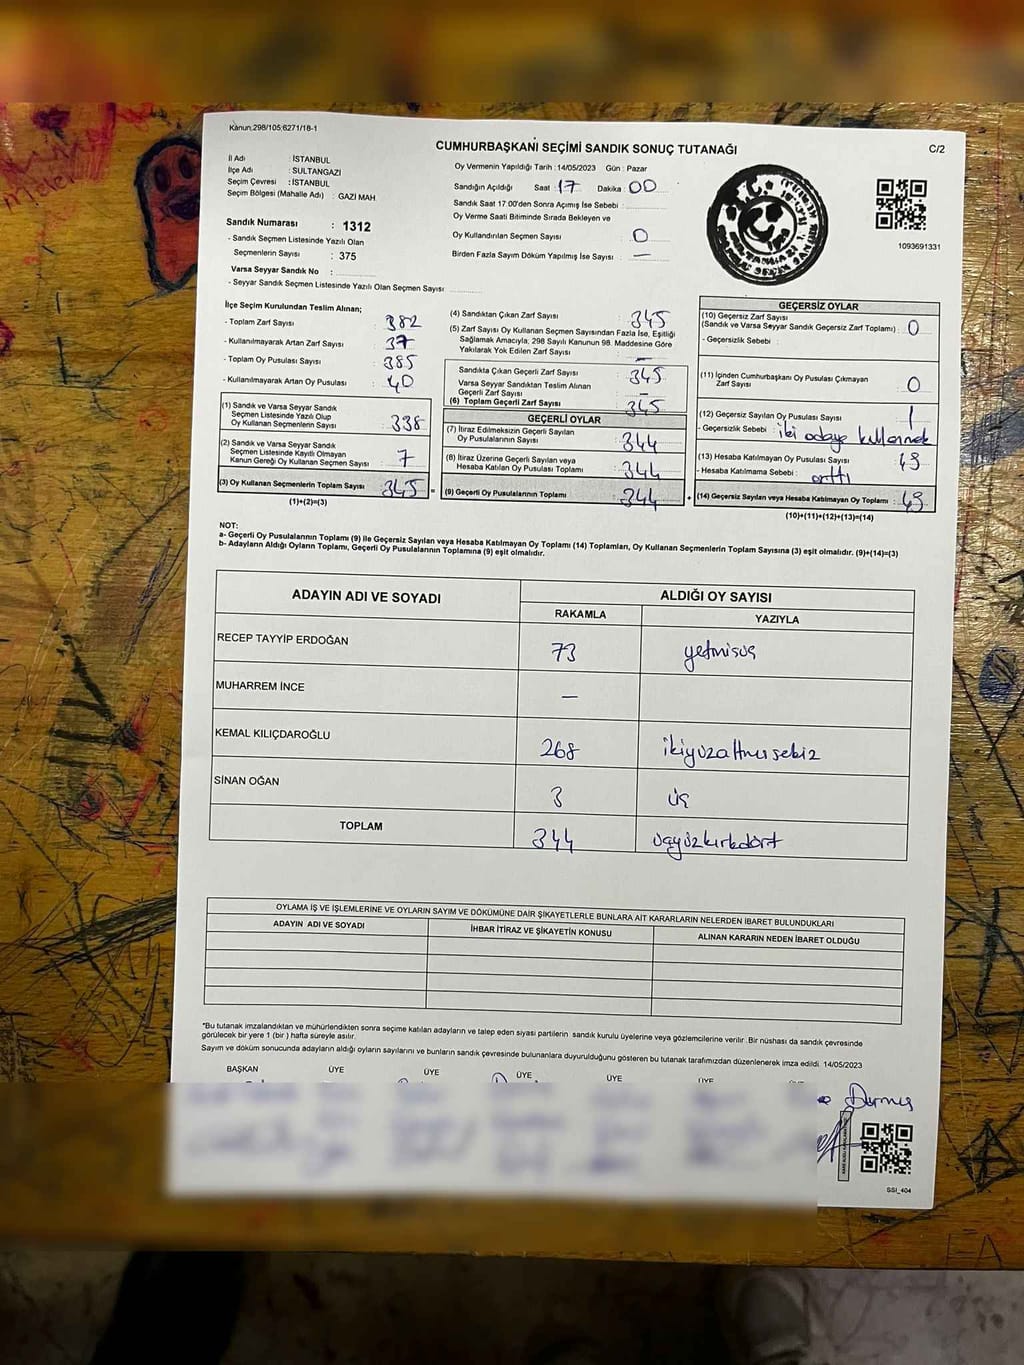 Kanun:298/105;6271/18-1
CUMHURBAŞKANI SEÇİMİ SANDIK SONUÇ TUTANAĞI
C/2
İl Adı : İSTANBUL
İlçe Adı : SULTANGAZİ
Seçim Çevresi : İSTANBUL
Seçim Bölgesi (Mahalle Adı) : GAZİ MAH
Sandık Numarası : 1312
- Sandık Seçmen Listesinde Yazılı Olan
Seçmenlerin Sayısı : 375
Varsa Seyyar Sandık No :
- Seyyar Sandık Seçmen Listesinde Yazılı Olan Seçmen Sayısı
Oy Vermenin Yapıldığı Tarih : 14/05/2023 Gün : Pazar
Sandığın Açıldığı Saat : 17 Dakika : 00
Sandık Saat 17:00'den Sonra Açımış İse Sebebi :
Oy Verme Saati Bitiminde Sırada Bekleyen ve
Oy Kullandırılan Seçmen Sayısı : 0
Birden Fazla Sayım Döküm Yapılmış İse Sayısı : —
1093691331
İlçe Seçim Kurulundan Teslim Alınan;
- Toplam Zarf Sayısı : 382
- Kullanılmayarak Artan Zarf Sayısı : 37
- Toplam Oy Pusulası Sayısı : 385
- Kullanılmayarak Artan Oy Pusulası : 40
(1) Sandık ve Varsa Seyyar Sandık
Seçmen Listesinde Yazılı Olup
Oy Kullanan Seçmenlerin Sayısı : 338
(2) Sandık ve Varsa Seyyar Sandık
Seçmen Listesinde Kayıtlı Olmayan
Kanun Gereği Oy Kullanan Seçmen Sayısı : 7
(3) Oy Kullanan Seçmenlerin Toplam Sayısı : 345
(1)+(2)=(3)
(4) Sandıktan Çıkan Zarf Sayısı : 345
(5) Zarf Sayısı Oy Kullanan Seçmen Sayısından Fazla İse, Eşitliği
Sağlamak Amacıyla; 298 Sayılı Kanunun 98. Maddesine Göre
Yakılarak Yok Edilen Zarf Sayısı : —
Sandıkta Çıkan Geçerli Zarf Sayısı : 345
Varsa Seyyar Sandıktan Teslim Alınan
Geçerli Zarf Sayısı : —
(6) Toplam Geçerli Zarf Sayısı : 345
GEÇERLİ OYLAR
(7) İtiraz Edilmeksizin Geçerli Sayılan
Oy Pusulalarının Sayısı : 344
(8) İtiraz Üzerine Geçerli Sayılan veya
Hesaba Katılan Oy Pusulası Toplamı : 344
(9) Geçerli Oy Pusulalarının Toplamı : 344
GEÇERSİZ OYLAR
(10) Geçersiz Zarf Sayısı
(Sandık ve Varsa Seyyar Sandık Geçersiz Zarf Toplamı) : 0
- Geçersizlik Sebebi :
(11) İçinden Cumhurbaşkanı Oy Pusulası Çıkmayan
Zarf Sayısı : 0
(12) Geçersiz Sayılan Oy Pusulası Sayısı : 1
- Geçersizlik Sebebi : iki adaya kullanmak
(13) Hesaba Katılmayan Oy Pusulası Sayısı
- Hesaba Katılmama Sebebi : arttı
(14) Geçersiz Sayılan veya Hesaba Katılmayan Oy Toplamı :
(10)+(11)+(12)+(13)=(14)
NOT:
a- Geçerli Oy Pusulalarının Toplamı (9) ile Geçersiz Sayılan veya Hesaba Katılmayan Oy Toplamı (14) Toplamları, Oy Kullanan Seçmenlerin Toplam Sayısına (3) eşit olmalıdır. (9)+(14)=(3)
b- Adayların Aldığı Oyların Toplamı, Geçerli Oy Pusulalarının Toplamına (9) eşit olmalıdır.
ADAYIN ADI VE SOYADI ALDIĞI OY SAYISI
RAKAMLA YAZIYLA
RECEP TAYYİP ERDOĞAN 73 yetmişüç
MUHARREM İNCE —
KEMAL KILIÇDAROĞLU 268 ikiyüzaltmışsekiz
SİNAN OĞAN 3 üç
TOPLAM 344 üçyüzkırkdört
OYLAMA İŞ VE İŞLEMLERİNE VE OYLARIN SAYIM VE DÖKÜMÜNE DAİR ŞİKAYETLERLE BUNLARA AİT KARARLARIN NELERDEN İBARET BULUNDUKLARI
ADAYIN ADI VE SOYADI İHBAR İTİRAZ VE ŞİKAYETİN KONUSU ALINAN KARARIN NEDEN İBARET OLDUĞU
*Bu tutanak imzalandıktan ve mühürlendikten sonra seçime katılan adayların ve talep eden siyasi partilerin sandık kurulu üyelerine veya gözlemcilerine verilir. Bir nüshası da sandık çevresinde
görülecek bir yere 1 (bir ) hafta süreyle asılır.
Sayım ve döküm sonucunda adayların aldığı oyların sayılarını ve bunların sandık çevresinde bulunanlara duyurulduğunu gösteren bu tutanak tarafımızdan düzenlenerek imza edildi. 14/05/2023
BAŞKAN ÜYE ÜYE ÜYE ÜYE ÜYE
SSI_404
EA